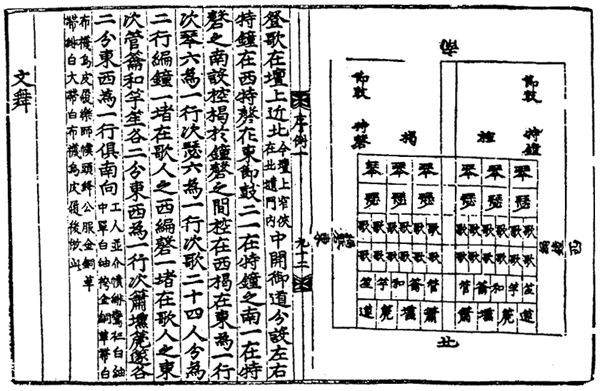 南
節鼓 特鐘
節鼓 特磬
椌
楬
琴琴琴琴琴琴
瑟瑟瑟瑟瑟瑟
歌歌歌歌歌歌歌歌歌歌歌歌
歌歌歌歌歌歌歌歌歌歌歌歌
笙竽和籥管管籥和竽笙
篴篪壎簫簫壎篪篴
編鐘
西
編磬
東
北
序例一 九十三
登歌在壇上近北今壇上窄狹在北壝門內中開御道分設左右
特鐘在西特磬在東節鼓二一在特鐘之南一在特
磬之南設椌楬於鐘磬之間椌在西楬在東為一行
次琴六為一行次瑟六為一行次歌二十四人分為
二行編鐘一堵在歌人之西編磬一堵在歌人之東
次管籥和竽笙各二分東西為一行次簫壎篪篴各
二分東西為一行俱南向工人並介幘緋鸞衫白紬中單白紬袴金銅革帶白
布襪烏皮履樂師幞頭綠公服金銅革
帶緋白大帶白布襪烏皮履後倣此
文舞